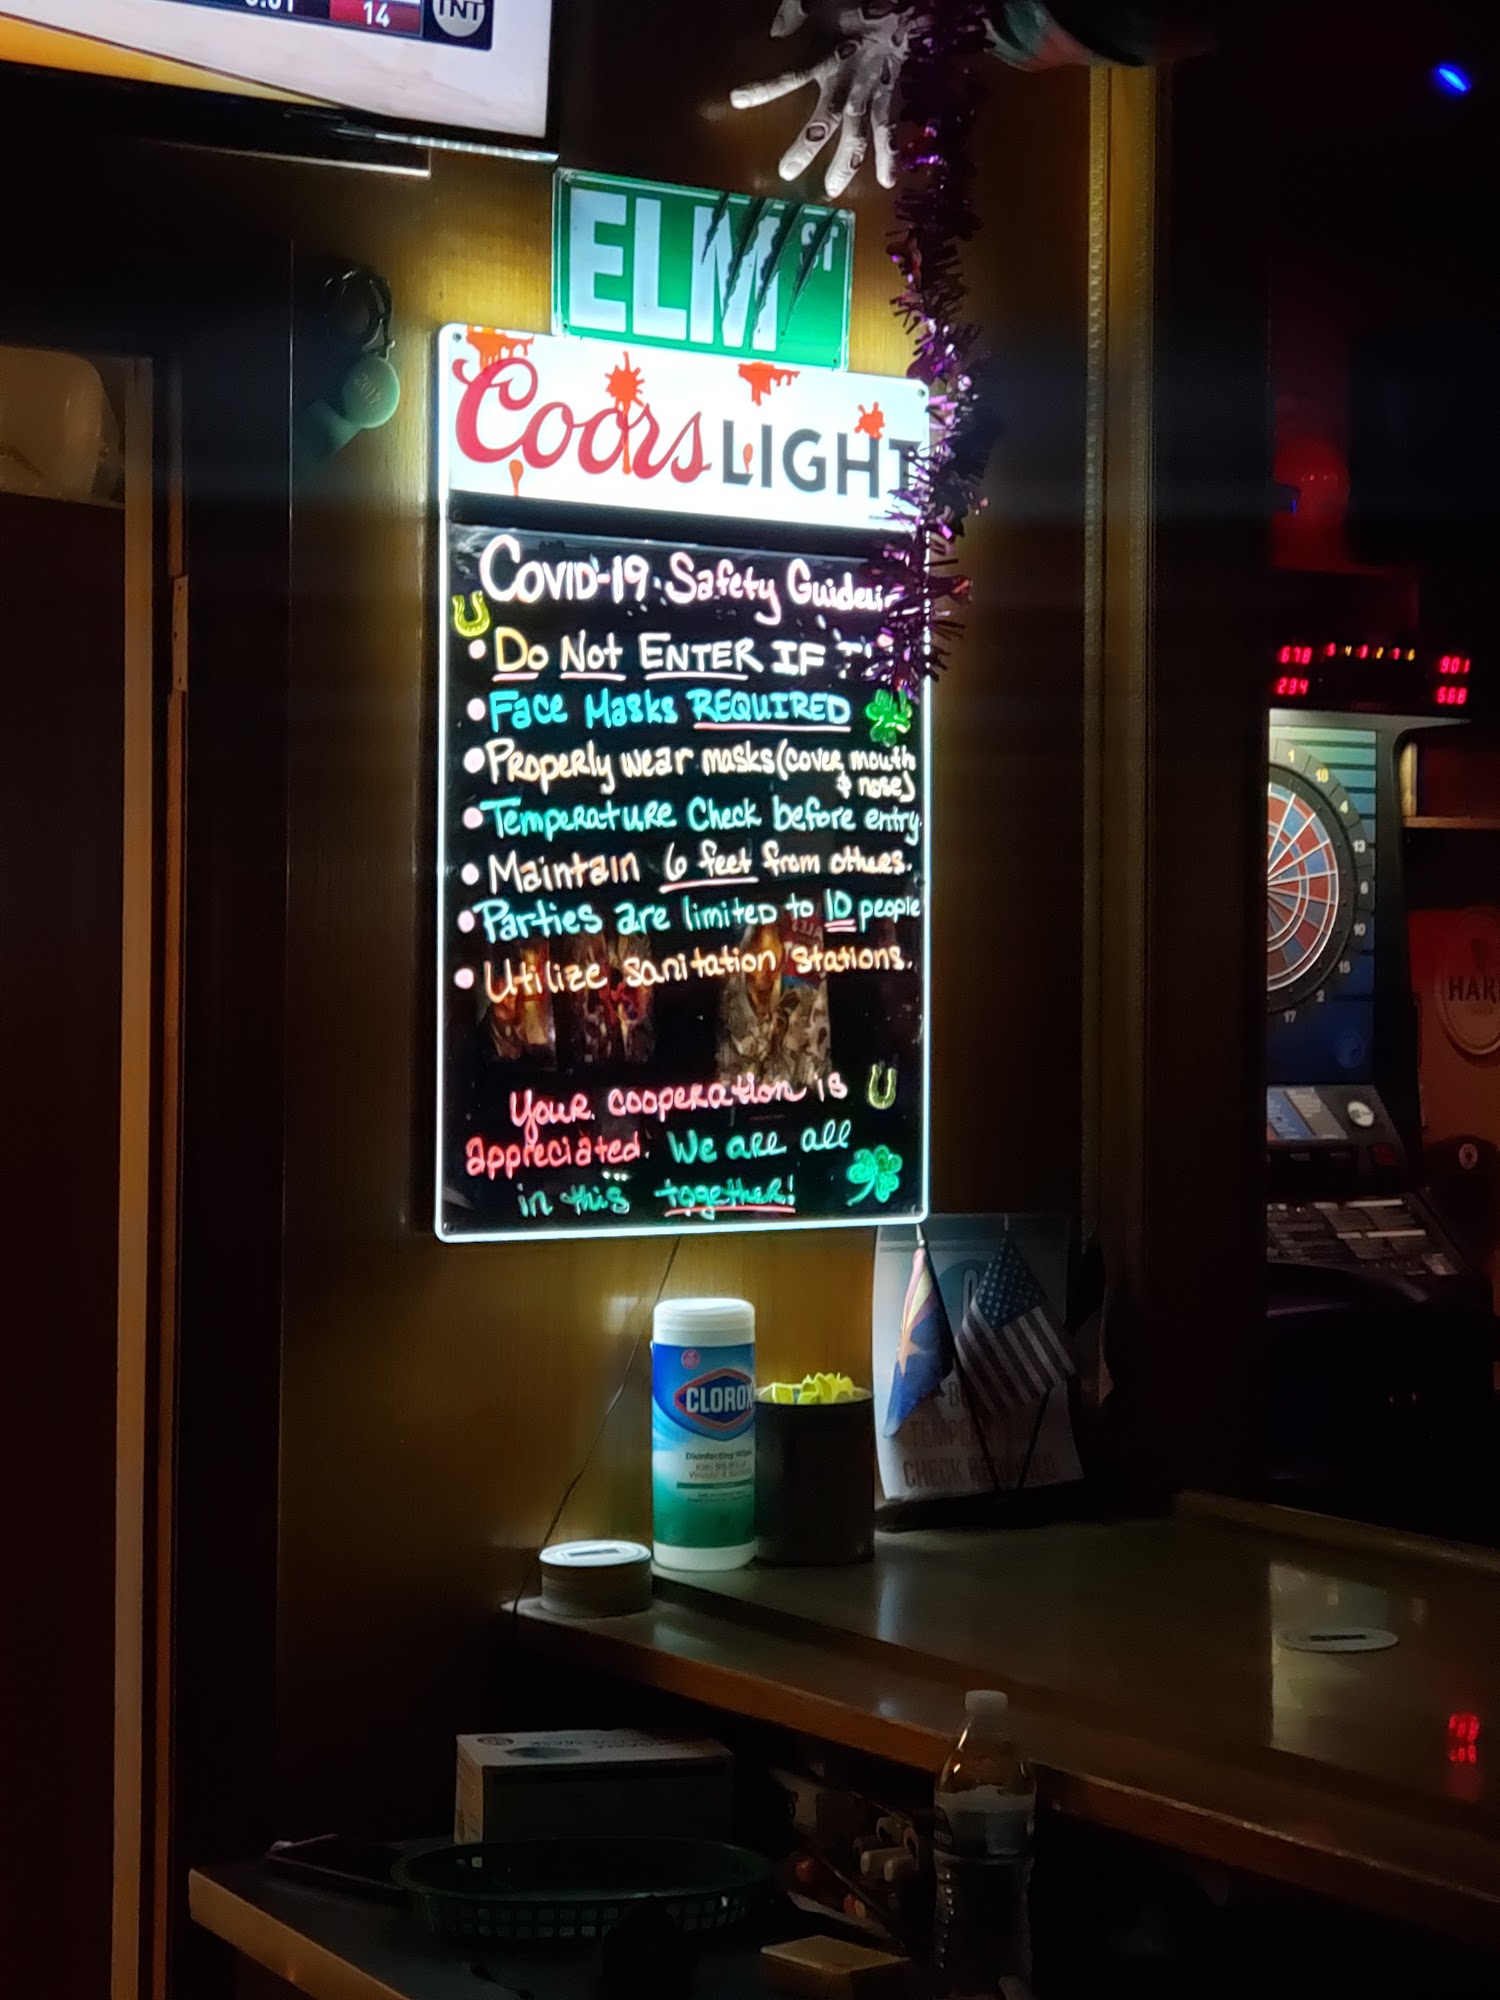 14
TNT
ELM ST
Coors LIGHT
COVID-19 Safety
• Do Not ENTER IF
• Face Masks REQUIRED
• Properly wear masks (cover mouth
& nose)
• Temperature Check before entry.
• Maintain 6 feet from others.
• Parties are limited to 10 people
• Utilize sanitation stations.
Your cooperation is
appreciated. We are all
in this together!
2017
678
901
234
568
1
18
4
13
6
10
15
2
17
HAR
CLOROX
Disinfecting Wipes
CHECK